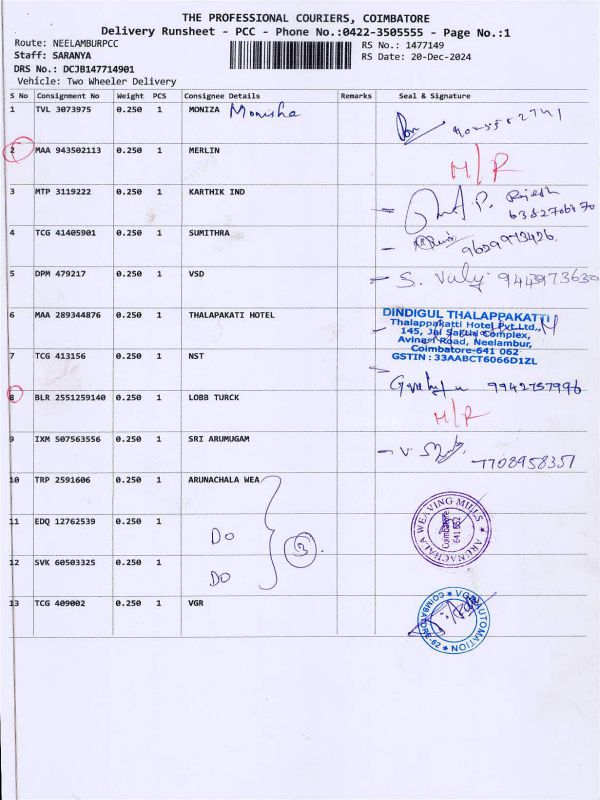 THE PROFESSIONAL COURIERS, COIMBATORE
Delivery Runsheet - PCC - Phone No.:0422-3505555 - Page No.:1
Route: NEELAMBURPCC
RS No.: 1477149
Staff: SARANYA
RS Date: 20-Dec-2024
DRS No.: DCJB147714901
Vehicle: Two Wheeler Delivery
S No Consignment No Weight PCS Consignee Details Remarks Seal & Signature
1 TVL 3073975 0.250 1 MONIZA Monisha
2 MAA 943502113 0.250 1 MERLIN M/R
3 MTP 3119222 0.250 1 KARTHIK IND
Rajesh
4 TCG 41405901 0.250 1 SUMITHRA 9629973426
5 DPM 479217 0.250 1 VSD S. Valy 9443973630
6 MAA 289344876 0.250 1 THALAPAKATI HOTEL
DINDIGUL THALAPPAKATTI
Thalappakatti Hotel Pvt.Ltd.,
145, Jai Sakthi Complex,
Avinasi Road, Neelambur,
Coimbatore-641 062
GSTIN : 33AABCT6066D1ZL
7 TCG 413156 0.250 1 NST 9942757996
8 BLR 2551259140 0.250 1 LOBB TURCK M/R
9 IXM 507563556 0.250 1 SRI ARUMUGAM 7708958357
10 TRP 2591606 0.250 1 ARUNACHALA WEA
ARUNACHALA WEAVING MILLS
Coimbatore
641 062
11 EDQ 12762539 0.250 1 Do
3
12 SVK 60503325 0.250 1 Do
13 TCG 409002 0.250 1 VGR
VGR AUTOMATION
COIMBATORE-62